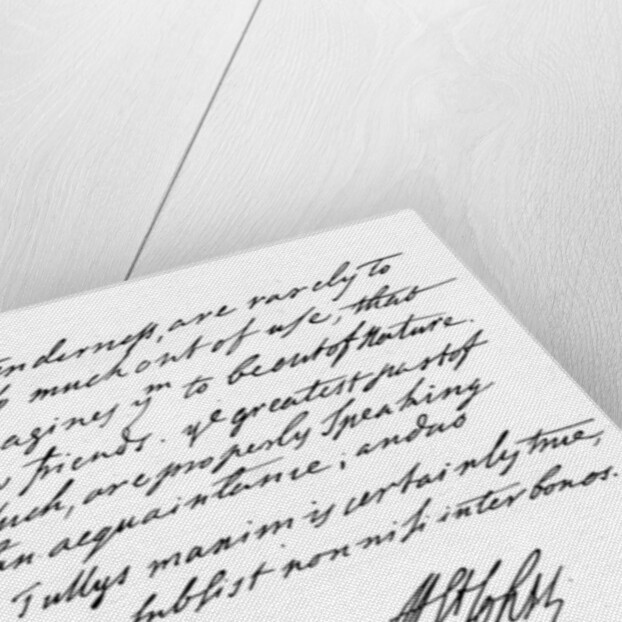 enderness, are rarely to
much out of use, that
agines yᵐ to be out of Nature.
friends. yᵉ greatest part of
such, are properly Speaking
an acquaintance; and no
Tullys maxim is certainly true,
subsist non nisi inter bonos.